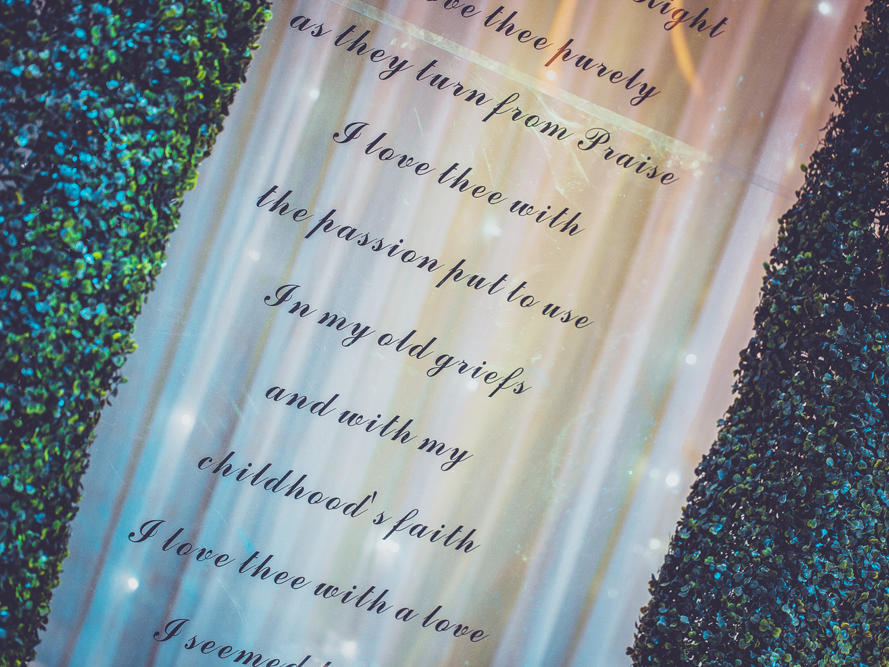 thee purely
as they turn from Praise
I love thee with
the passion put to use
In my old griefs
and with my
childhood's faith
I love thee with a love
I seemed